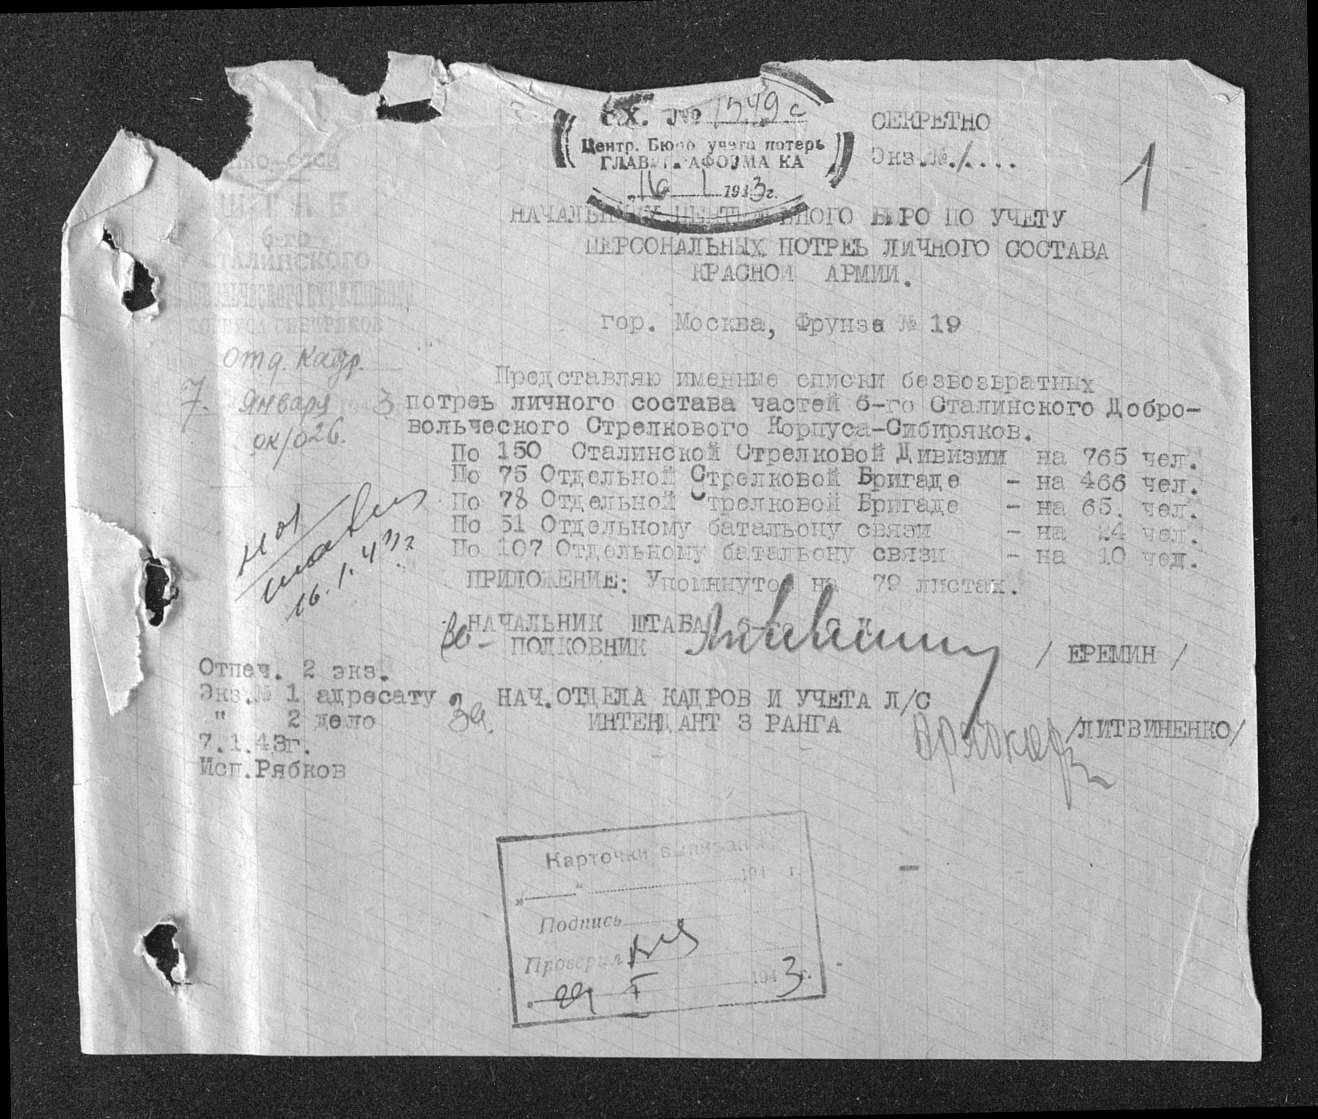 вх. № 1549 с
Центр. Бюро учета потерь
16 1 1943г.
СЕКРЕТНО
Экз.№ 1....
1
ШТАБ
6-го
СТАЛИНСКОГО
КОРПУСА СИБИРЯКОВ
Отд. Кадр.
7. Января 194 3
ок/026.
НАЧАЛЬНИКУ ЦЕНТРАЛЬНОГО БЮРО ПО УЧЕТУ
ПЕРСОНАЛЬНЫХ ПОТРЕЬ ЛИЧНОГО СОСТАВА
КРАСНОЙ АРМИИ.
гор. Москва, Фрунзе № 19
Представляю именные списки безвозвратных
потреь личного состава частей 6-го Сталинского Добро-
вольческого Стрелкового Корпуса-Сибиряков.
По 150 Сталинской Стрелковой Дивизии на 765 чел.
По 75 Отдельной Стрелковой Бригаде - на 466 чел.
По 78 Отдельной Стрелковой Бригаде - на 65. чел.
По 51 Отдельному батальону связи - на 24 чел.
По 107 Отдельному батальону связи - на 10 чел.
ПРИЛОЖЕНИЕ: Упомянутое на 79 листах.
16.1.43г
НАЧАЛЬНИК ШТАБА 6-го
ПОЛКОВНИК / ЕРЕМИН /
Отпеч. 2 экз.
Экз.№ 1 адресату
" 2 дело
7.1.43г.
Исп.Рябков
За НАЧ.ОТДЕЛА КАДРОВ И УЧЕТА Л/С
ИНТЕНДАНТ 3 РАНГА /ЛИТВИНЕНКО/
Карточки выписаны
"——" 194 г.
Подпись
Проверил
29 I 1943г.